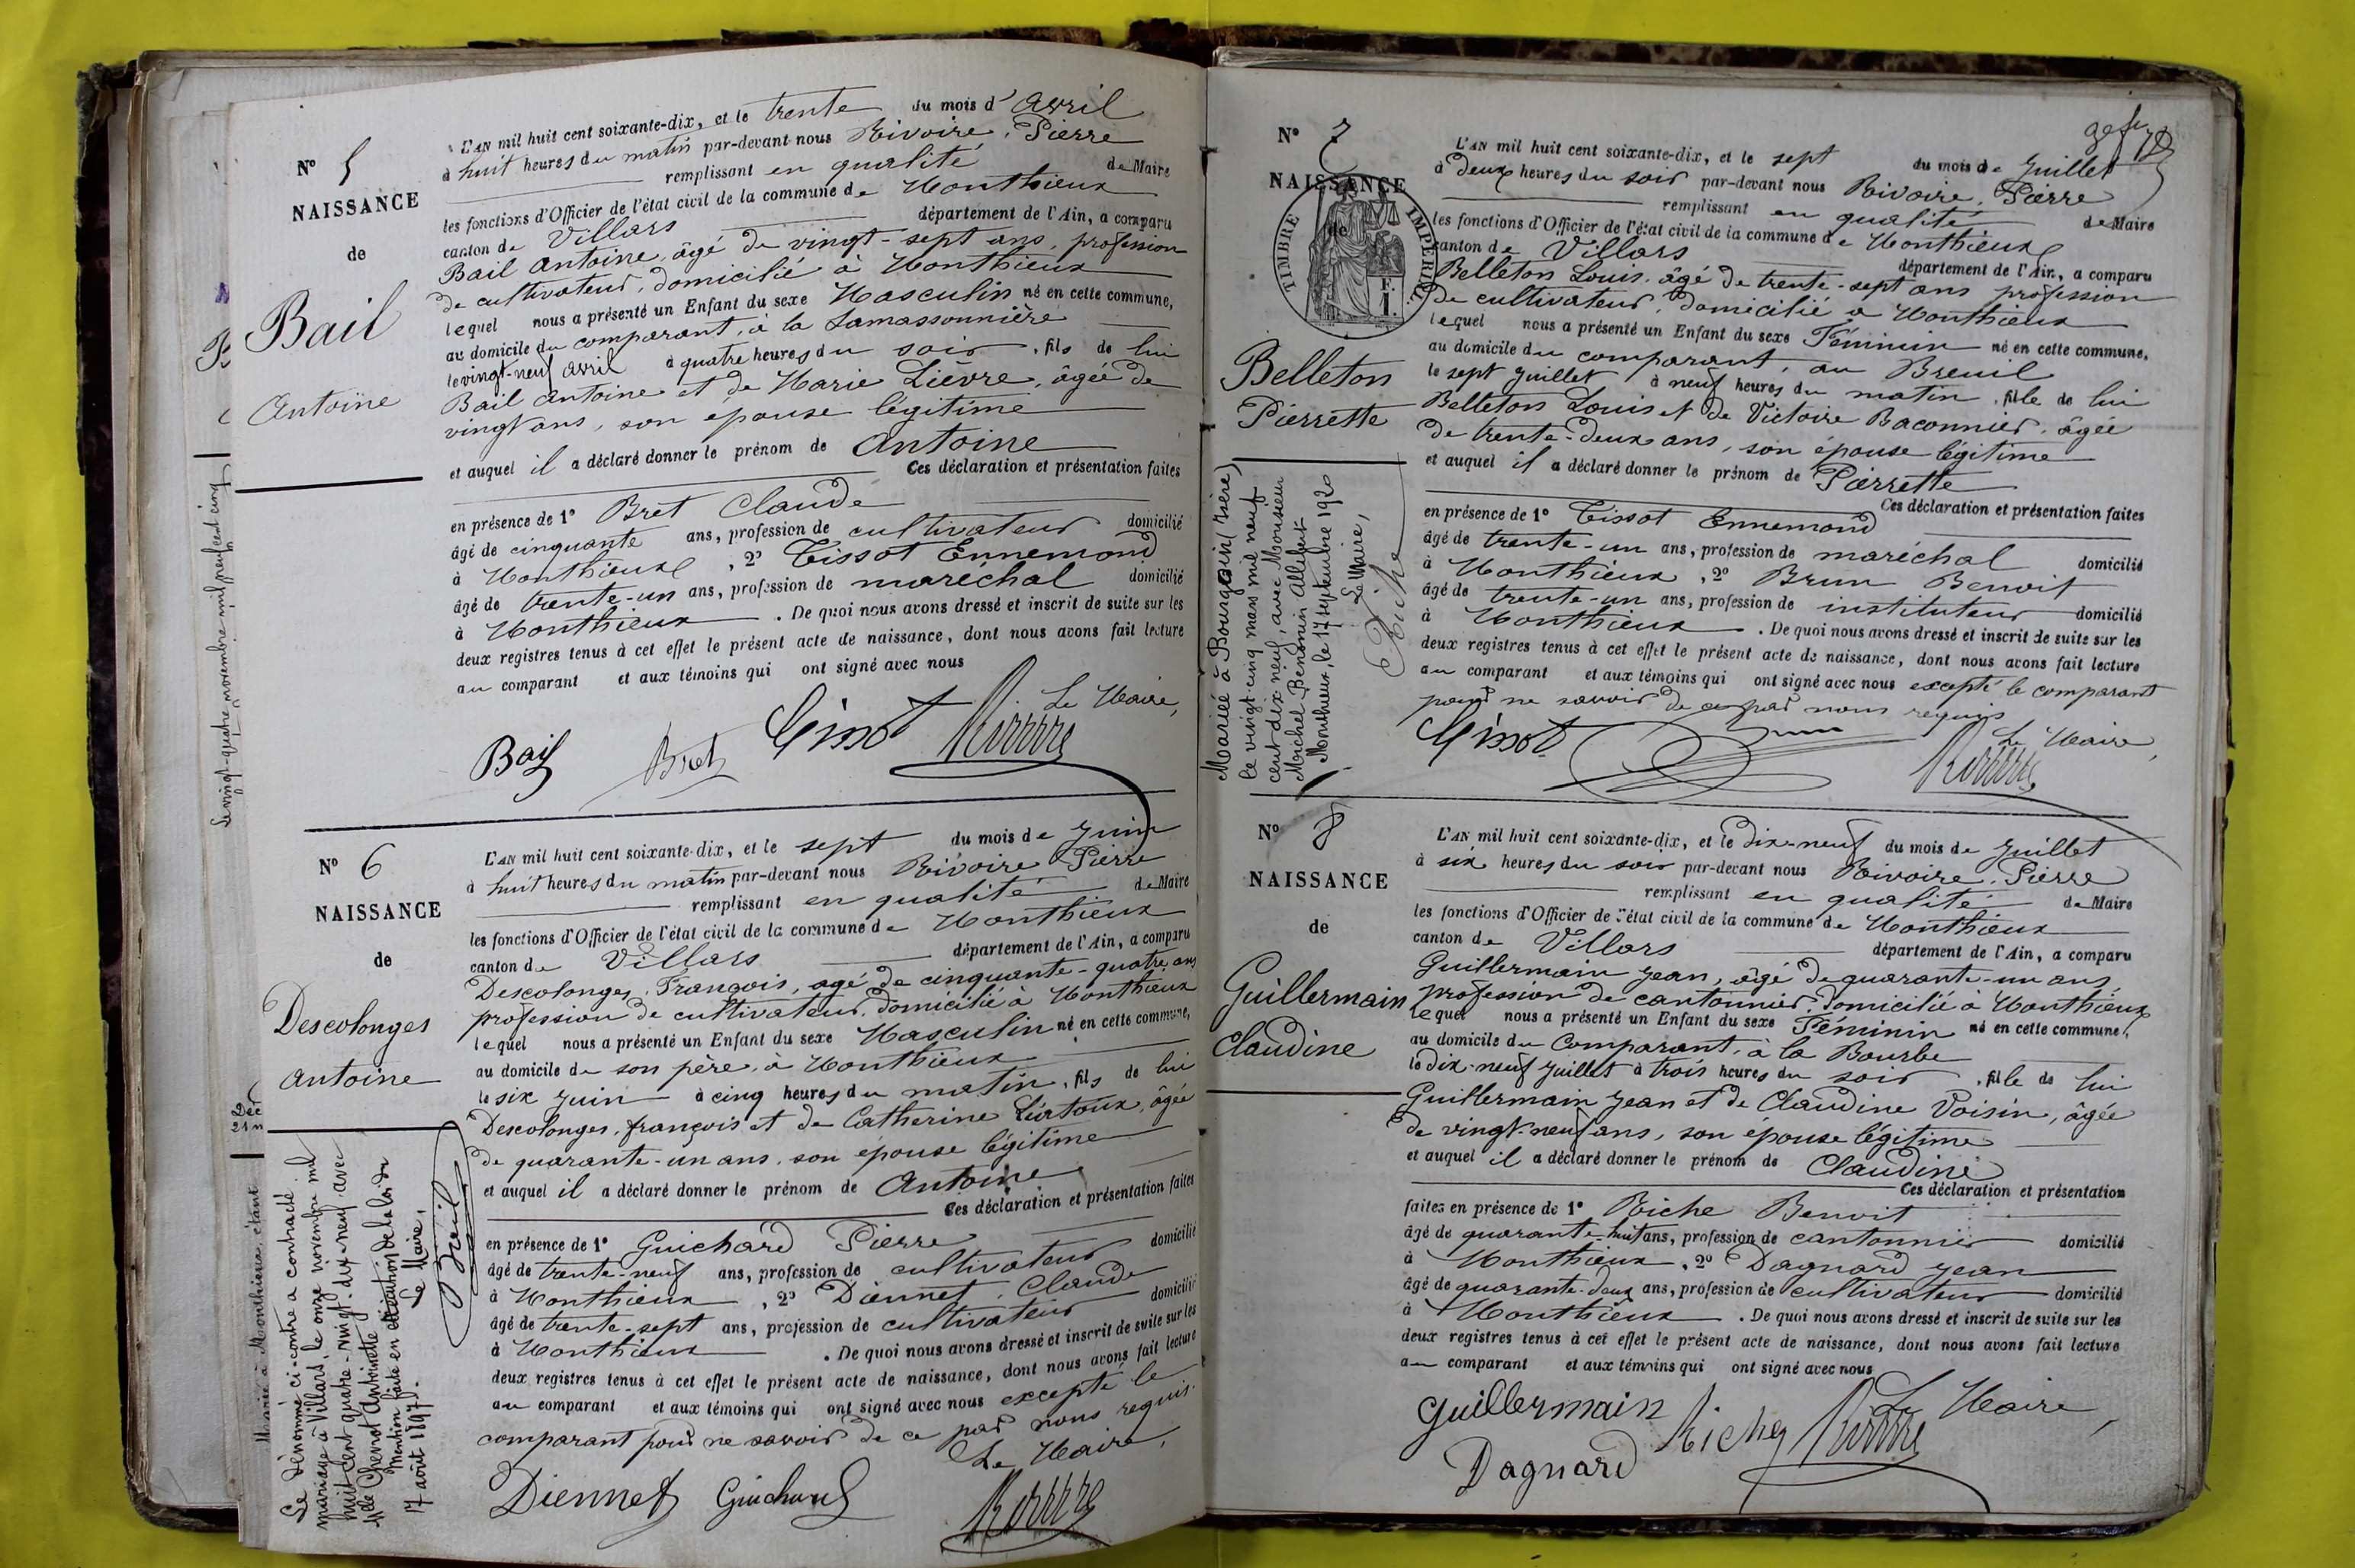 N° 5
NAISSANCE
de
Bail
Antoine
L'AN mil huit cent soixante-dix, et le trente du mois d' avril
à huit heures du matin par-devant nous Rivoire, Pierre
remplissant en qualité de Maire
les fonctions d'Officier de l'état civil de la commune de Monthieux
canton de Villars département de l'Ain, a comparu
Bail Antoine, âgé de vingt-sept ans, profession
de cultivateur, domicilié à Monthieux
lequel nous a présenté un Enfant du sexe Masculin né en cette commune,
au domicile du comparant, à la Lamassonnière
le vingt-neuf avril à quatre heures du soir, fils de lui
Bail Antoine et de Marie Lièvre, âgée de
vingt ans, son épouse légitime
et auquel il a déclaré donner le prénom de Antoine
Ces déclaration et présentation faites
en présence de 1° Bret Claude
âgé de cinquante ans, profession de cultivateur domicilié
à Monthieux, 2° Tissot Ennemond
âgé de trente-un ans, profession de maréchal domicilié
à Monthieux. De quoi nous avons dressé et inscrit de suite sur les
deux registres tenus à cet effet le présent acte de naissance, dont nous avons fait lecture
au comparant et aux témoins qui ont signé avec nous
Le Maire,
Bail Bret Rivoire
le vingt-quatre novembre mil neuf cent cinq
N° 6
NAISSANCE
de
Descolonges
Antoine
L'AN mil huit cent soixante-dix, et le sept du mois de Juin
à huit heures du matin par-devant nous Rivoire Pierre
remplissant en qualité de Maire
les fonctions d'Officier de l'état civil de la commune de Monthieux
canton de Villars département de l'Ain, a comparu
Descolonges, François, agé de cinquante-quatre ans
profession de cultivateur, domicilié à Monthieux
lequel nous a présenté un Enfant du sexe Masculin né en cette commune,
au domicile de son père, à Monthieux
le six Juin à cinq heures du matin, fils de lui
Descolonges, françois et de Catherine âgée
de quarante-un ans, son épouse légitime
et auquel il a déclaré donner le prénom de Antoine
Ces déclaration et présentation faites
en présence de 1° Guichard Pierre
âgé de trente-neuf ans, profession de cultivateur domicilié
à Monthieux, 2° Diennet, Claude
âgé de trente-sept ans, profession de cultivateur domicilié
à Monthieux. De quoi nous avons dressé et inscrit de suite sur les
deux registres tenus à cet effet le présent acte de naissance, dont nous avons fait lecture
au comparant et aux témoins qui ont signé avec nous excepté le
comparant pour ne savoir de ce par nous requis.
Le Maire,
Diennet Guichard Rivoire
Marié à Monthieux, étant
Le dénommé ci-contre a contracté
mariage à Villars, le onze novembre mil
huit cent quatre-vingt-dix-neuf avec
Mlle Chevrot Antoinette
Mention faite en exécution de la loi du
17 août 1897.
Le Maire,
N° 7
NAISSANCE
de
TIMBRE IMPÉRIAL
Belleton
Pierrette
L'AN mil huit cent soixante-dix, et le sept du mois de Juillet
à deux heures du soir par-devant nous Rivoire, Pierre
remplissant en qualité de Maire
les fonctions d'Officier de l'état civil de la commune de Monthieux
canton de Villars département de l'Ain, a comparu
Belleton Louis, âgé de trente-sept ans profession
de cultivateur, domicilié à Monthieux
lequel nous a présenté un Enfant du sexe Féminin né en cette commune,
au domicile du comparant, au Breuil
le sept Juillet à neuf heures du matin, fille de lui
Belleton Louis et de Victoire Baconnier, âgée
de trente-deux ans, son épouse légitime
et auquel il a déclaré donner le prénom de Pierrette
Ces déclaration et présentation faites
en présence de 1° Tissot Ennemond
âgé de trente-un ans, profession de maréchal domicilié
à Monthieux, 2° Brun Benoit
âgé de trente-un ans, profession de instituteur domicilié
à Monthieux. De quoi nous avons dressé et inscrit de suite sur les
deux registres tenus à cet effet le présent acte de naissance, dont nous avons fait lecture
au comparant et aux témoins qui ont signé avec nous excepté le comparant
pour ne savoir de ce par nous requis
Le Maire,
Brun Rivoire
Mariée à Bourgoin (Isère)
le vingt-cinq mars mil neuf
cent dix neuf, avec Monsieur
Michel Benonin Albert
Monthieux, le 17 septembre 1920
Le Maire,
Riche
N° 8
NAISSANCE
de
Guillermain
Claudine
L'AN mil huit cent soixante-dix, et le dix-neuf du mois de Juillet
à six heures du soir par-devant nous Rivoire, Pierre
remplissant en qualité de Maire
les fonctions d'Officier de l'état civil de la commune de Monthieux
canton de Villars département de l'Ain, a comparu
Guillermain Jean, âgé de quarante-un ans
profession de cantonnier, domicilié à Monthieux
lequel nous a présenté un Enfant du sexe Féminin né en cette commune,
au domicile du comparant, à la Bourbe
le dix-neuf Juillet à trois heures du soir, fille de lui
Guillermain Jean et de Claudine Voisin, âgée
de vingt-neuf ans, son épouse légitime
et auquel il a déclaré donner le prénom de Claudine
Ces déclaration et présentation
faites en présence de 1° Riche Benoit
âgé de quarante-huit ans, profession de cantonnier domicilié
à Monthieux, 2° Dagnard Jean
âgé de quarante-deux ans, profession de cultivateur domicilié
à Monthieux. De quoi nous avons dressé et inscrit de suite sur les
deux registres tenus à cet effet le présent acte de naissance, dont nous avons fait lecture
au comparant et aux témoins qui ont signé avec nous
Le Maire,
Guillermain Riche Rivoire
Dagnard